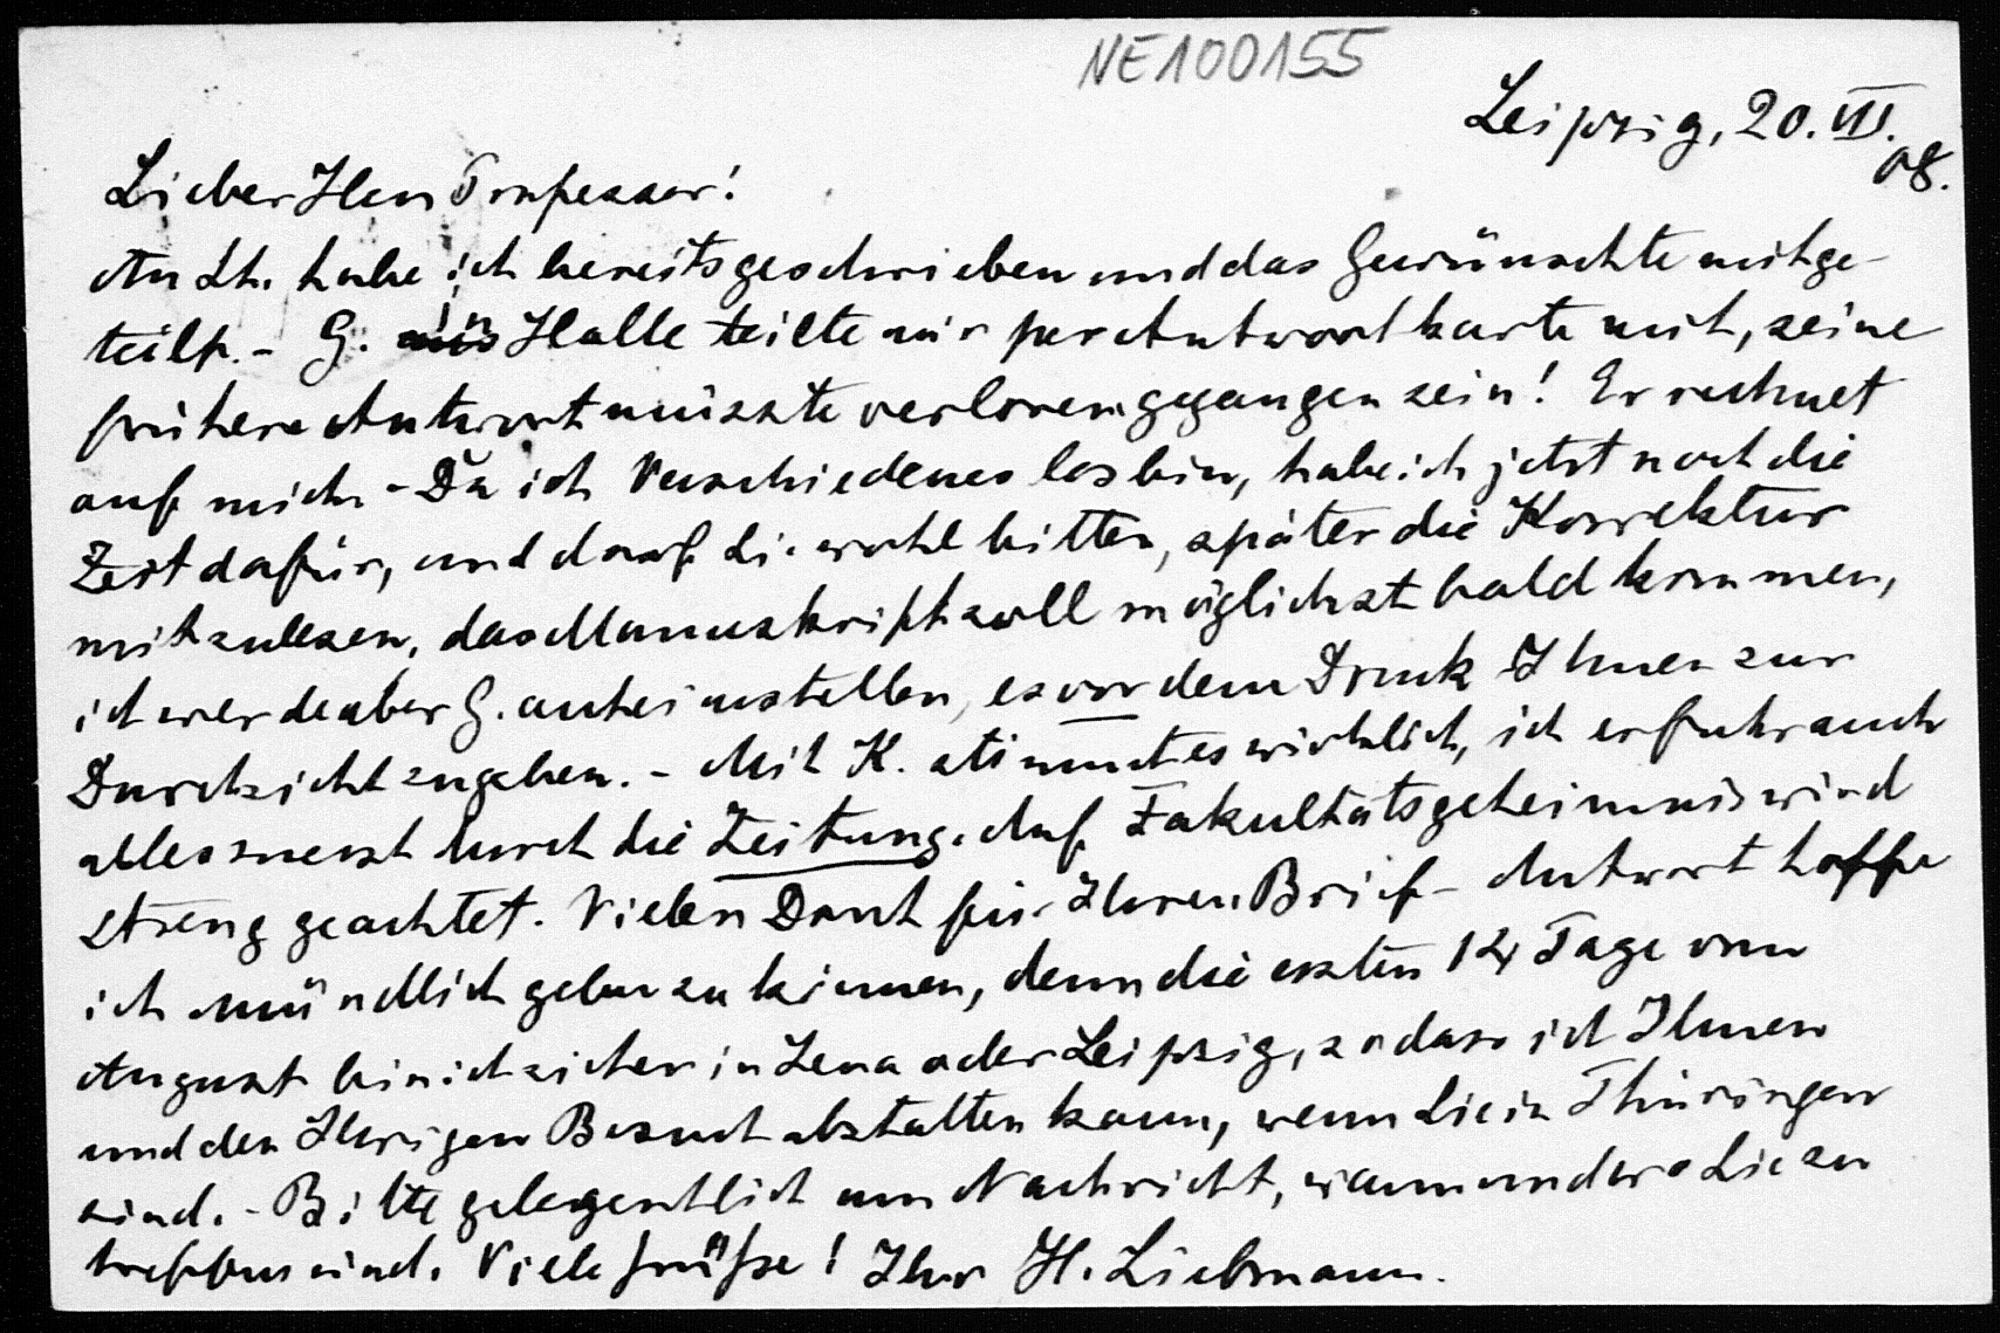 NE100155
Leipzig, 20. VII.
08.
Lieber Herr Professor!
An St. habe ich bereits geschrieben und das Gewünschte mitge-
teilt. - G. in Halle teilte mir per Antwortkarte mit, seine
frühere Antwort müsste verloren gegangen sein! Er rechnet
auf mich. - Da ich Verschiedenes los bin, habe ich jetzt noch die
Zeit dafür, und darf Sie wohl bitten, später die Korrektur
mitzulesen, das Manuskript soll möglichst bald kommen,
ich werde aber G. anheimstellen, es vor dem Druck Ihnen zur
Durchsicht zu geben. - Mit K. stimmt es wirklich, ich erfuhr auch
alles zuerst durch die Zeitung. Auf Fakultätsgeheimnis wird
streng geachtet. Vielen Dank für Ihren Brief - Antwort hoffe
ich mündlich geben zu können, denn die ersten 14 Tage vom
August bin ich sicher in Jena oder Leipzig, sodass ich Ihnen
und den Ihrigen Besuch abstatten kann, wenn Sie in Thüringen
sind. - Bitte gelegentlich um Nachricht, wann und wo Sie zu
treffen sind. Viele Grüße! Ihr H. Liebmann.